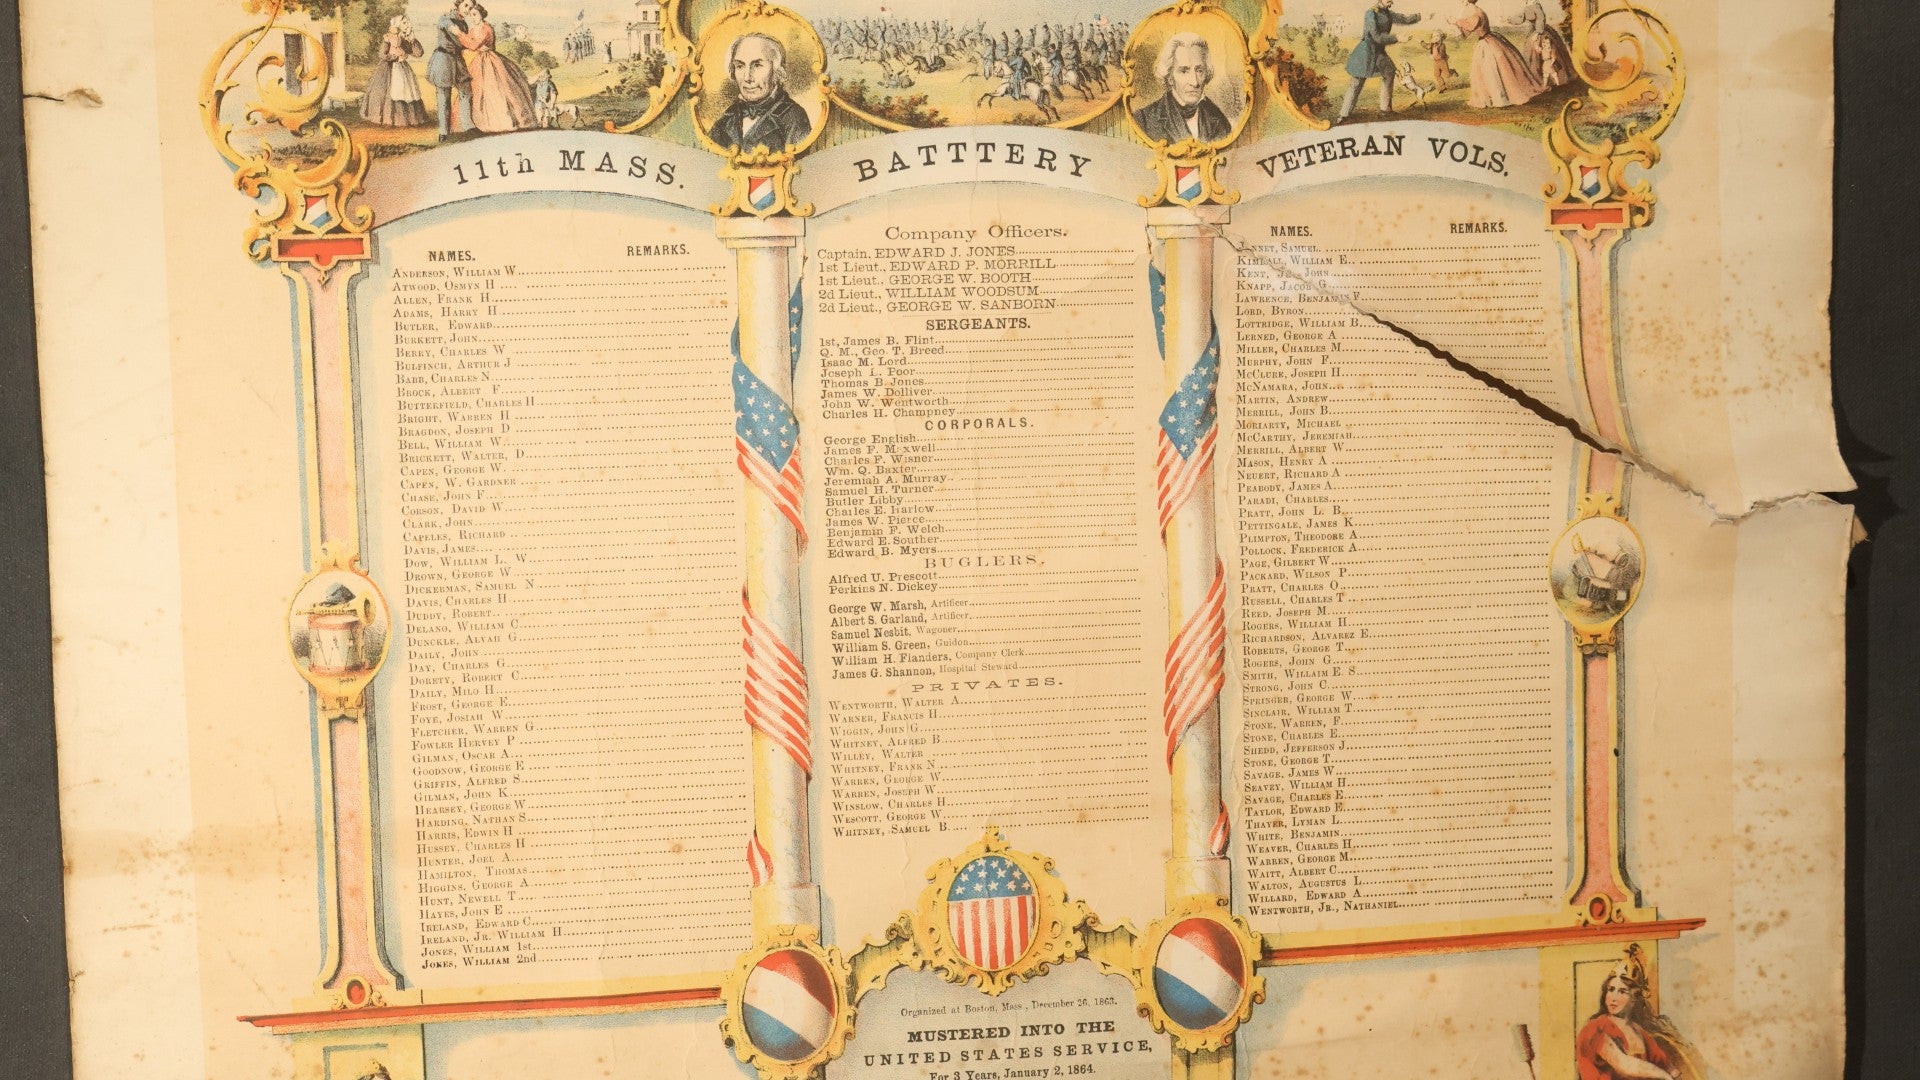 11th MASS. BATTTERY VETERAN VOLS.
NAMES. REMARKS.
ANDERSON, WILLIAM W
ATWOOD, OSMYN H
ALLEN, FRANK H.
ADAMS, HARRY H
BUTLER, EDWARD
BURKETT, JOHN
BERRY, CHARLES W
BULFINCH, ARTHUR J
BABB, CHARLES N
BROCK, ALBERT F.
BUTTERFIELD, CHARLES H
BRIGHT, WARREN H
BRAGDON, JOSEPH D
BELL, WILLIAM W.
BRICKETT, WALTER, D
CAPEN, GEORGE W.
CAPEN, W. GARDNER
CHASE, JOHN F
CORSON, DAVID W
CLARK, JOHN
CAPELES, RICHARD
DAVIS, JAMES
DOW, WILLIAM L. W
DROWN, GEORGE W
DICKERMAN, SAMUEL N
DAVIS, CHARLES H
DUDDY, ROBERT
DELANO, WILLIAM C
DUNCKLE, ALVAH G
DAILY, JOHN
DAY, CHARLES G
DORETY, ROBERT C
DAILY, MILO H
FROST, GEORGE E
FOYE, JOSIAH W
FLETCHER, WARREN G
FOWLER HERVEY P
GILMAN, OSCAR A
GOODNOW, GEORGE E
GRIFFIN, ALFRED S
GILMAN, JOHN K
HEARSEY, GEORGE W
HARDING, NATHAN S
HARRIS, EDWIN H
HUSSEY, CHARLES H
HUNTER, JOEL A
HAMILTON, THOMAS
HIGGINS, GEORGE A
HUNT, NEWELL T
HAYES, JOHN E
IRELAND, EDWARD C
IRELAND, JR. WILLIAM H
JONES, WILLIAM 1st
JONES, WILLIAM 2nd
Company Officers.
Captain. EDWARD J. JONES
1st Lieut., EDWARD P. MORRILL
1st Lieut., GEORGE W. BOOTH
2d Lieut., WILLIAM WOODSUM
2d Lieut., GEORGE W. SANBORN
SERGEANTS.
1st, James B. Flint
Q. M., Geo. T. Breed
Isaac M. Lord
Joseph L. Poor
Thomas B. Jones
James W. Dolliver
John W. Wentworth
Charles H. Champney
CORPORALS.
George English
James F. Maxwell
Charles F. Wisner
Wm. Q. Baxter
Jeremiah A. Murray
Samuel H. Turner
Butler Libby
Charles E. Harlow
James W. Pierce
Benjamin F. Welch
Edward E. Souther
Edward B. Myers
BUGLERS.
Alfred U. Prescott
Perkins N. Dickey
George W. Marsh, Artificer
Albert S. Garland, Artificer
Samuel Nesbit, Wagoner
William S. Green, Guidon
William H. Flanders, Company Clerk
James G. Shannon, Hospital Steward
PRIVATES.
WENTWORTH, WALTER A
WARNER, FRANCIS H
WIGGIN, JOHN G
WHITNEY, ALFRED B
WILLEY, WALTER
WHITNEY, FRANK N
WARREN, GEORGE W
WARREN, JOSEPH W
WINSLOW, CHARLES H
WESCOTT, GEORGE W
WHITNEY, SAMUEL B
Organized at Boston, Mass., December 26, 1863.
MUSTERED INTO THE
UNITED STATES SERVICE,
For 3 Years, January 2, 1864.
NAMES. REMARKS.
SAMUEL
KIMBALL, WILLIAM E.
KENT, JOHN
KNAPP, JACOB G
LAWRENCE, BENJAMIN F
LORD, BYRON
LOTTRIDGE, WILLIAM B
LERNED, GEORGE A
MILLER, CHARLES M
MURPHY, JOHN F
MCCLURE, JOSEPH H
MCNAMARA, JOHN
MARTIN, ANDREW
MERRILL, JOHN B
MORIARTY, MICHAEL
MCCARTHY, JEREMIAH
MERRILL, ALBERT W
MASON, HENRY A
NEUERT, RICHARD A
PEABODY, JAMES A
PARADI, CHARLES
PRATT, JOHN L. B
PETTINGALE, JAMES K
PLIMPTON, THEODORE A
POLLOCK, FREDERICK A
PAGE, GILBERT W
PACKARD, WILSON P
PRATT, CHARLES O
RUSSELL, CHARLES T
REED, JOSEPH M
ROGERS, WILLIAM H
RICHARDSON, ALVAREZ E
ROBERTS, GEORGE T
ROGERS, JOHN G
SMITH, WILLAIM E S
STRONG, JOHN C
SPRINGER, GEORGE W
SINCLAIR, WILLIAM T
STONE, WARREN, F
STONE, CHARLES E
SHEDD, JEFFERSON J
STONE, GEORGE T
SAVAGE, JAMES W
SEAVEY, WILLIAM H
SAVAGE, CHARLES E
TAYLOR, EDWARD E
THAYER, LYMAN L
WHITE, BENJAMIN
WEAVER, CHARLES H
WARREN, GEORGE M
WAITT, ALBERT C
WALTON, AUGUSTUS L
WILLARD, EDWARD A
WENTWORTH, JR., NATHANIEL